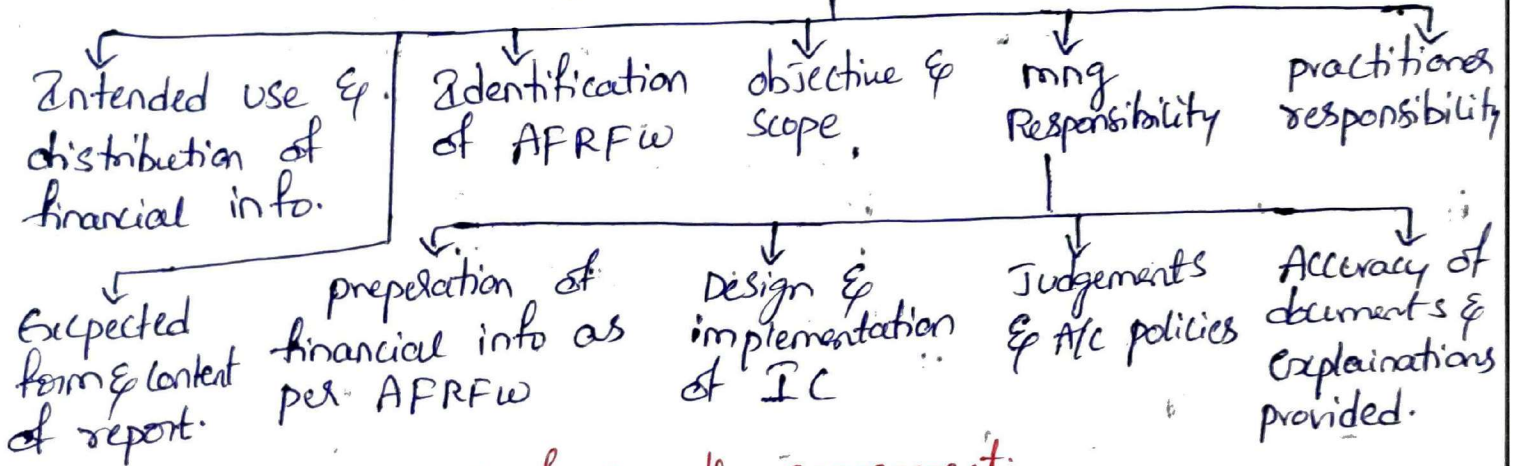 Intended use &
distribution of
financial info.
Identification
of AFRFW
objective &
scope.
mng
Responsibility
practitioner
responsibility
Expected
form & content
of report.
preperation of
financial info as
per AFRFW
Design &
implementation
of IC
Judgements
& A/c policies
Accuracy of
documents &
explainations
provided.